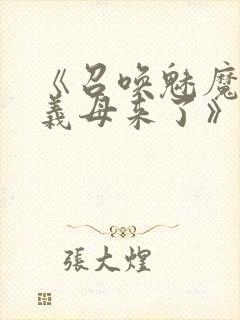 《召唤魅魔
義母来了》
張大煌